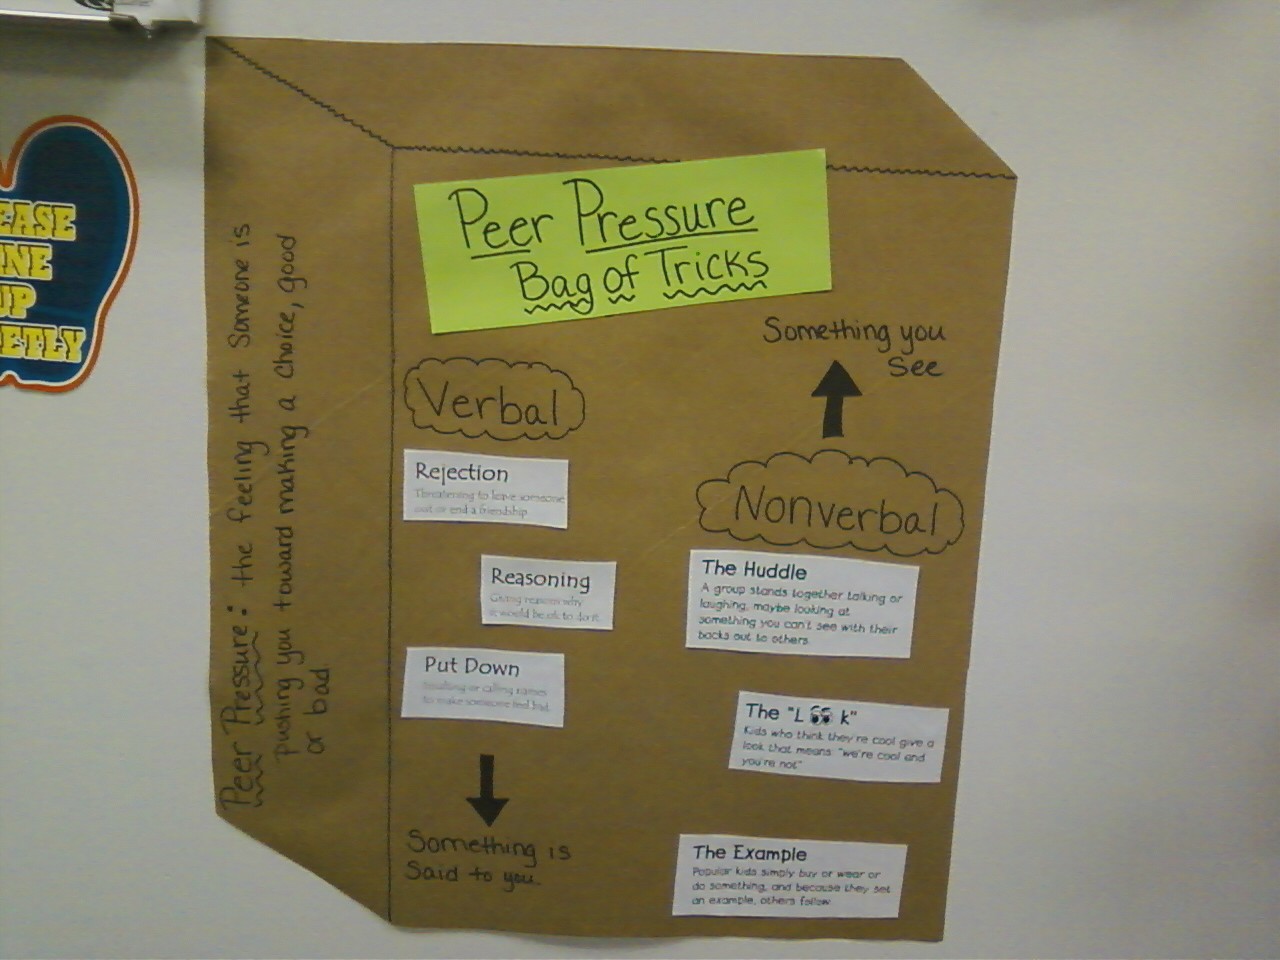 EASE
NE
UP
ETLY
Peer Pressure: the feeling that someone is
pushing you toward making a choice, good
or bad
Peer Pressure
Bag of Tricks
Verbal
Rejection
Threatening to leave someone
out or end a friendship
Reasoning
Giving reasons why
it would be ok to do it.
Put Down
Insulting or calling names
to make someone feel bad.
Something is
Said to you.
Something you
See
Nonverbal
The Huddle
A group stands together talking or
laughing, maybe looking at
something you can't see with their
backs out to others.
The "L👀k"
Kids who think they're cool give a
look that means: "we're cool and
you're not"
The Example
Popular kids simply buy or wear or
do something, and because they set
an example, others follow.